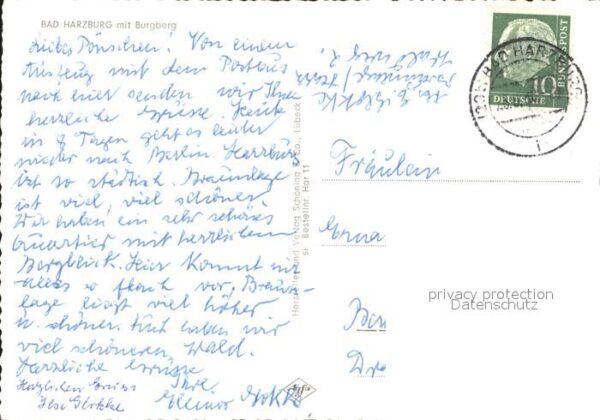 BAD HARZBURG mit Burgberg
Liebes Pönschen! Von einem
Ausflug mit dem Postbus
nach hier senden wir Ihnen
herrliche Grüsse. Heute
in 8 Tagen geht es leider
wieder nach Berlin. Harzburg
ist so städtisch. Braunlage
ist viel, viel schöner.
Wir haben ein sehr schönes
Quartier mit herrlichem
Bergblick. Hier kommt mir
alles so flach vor, Braun-
lage liegt viel höher
u. schöner. Auch haben wir
viel schöneren Wald.
Herzliche Grüsse
Ihre
Herzlichen Gruss
Ilse
Hersteller und Verlag Schöning & Co., Lübeck
St Bestellnr. Har 11
BAD HARZBURG
10
DEUTSCHE
BUNDESPOST
Fräulein
Erna
privacy protection
Datenschutz